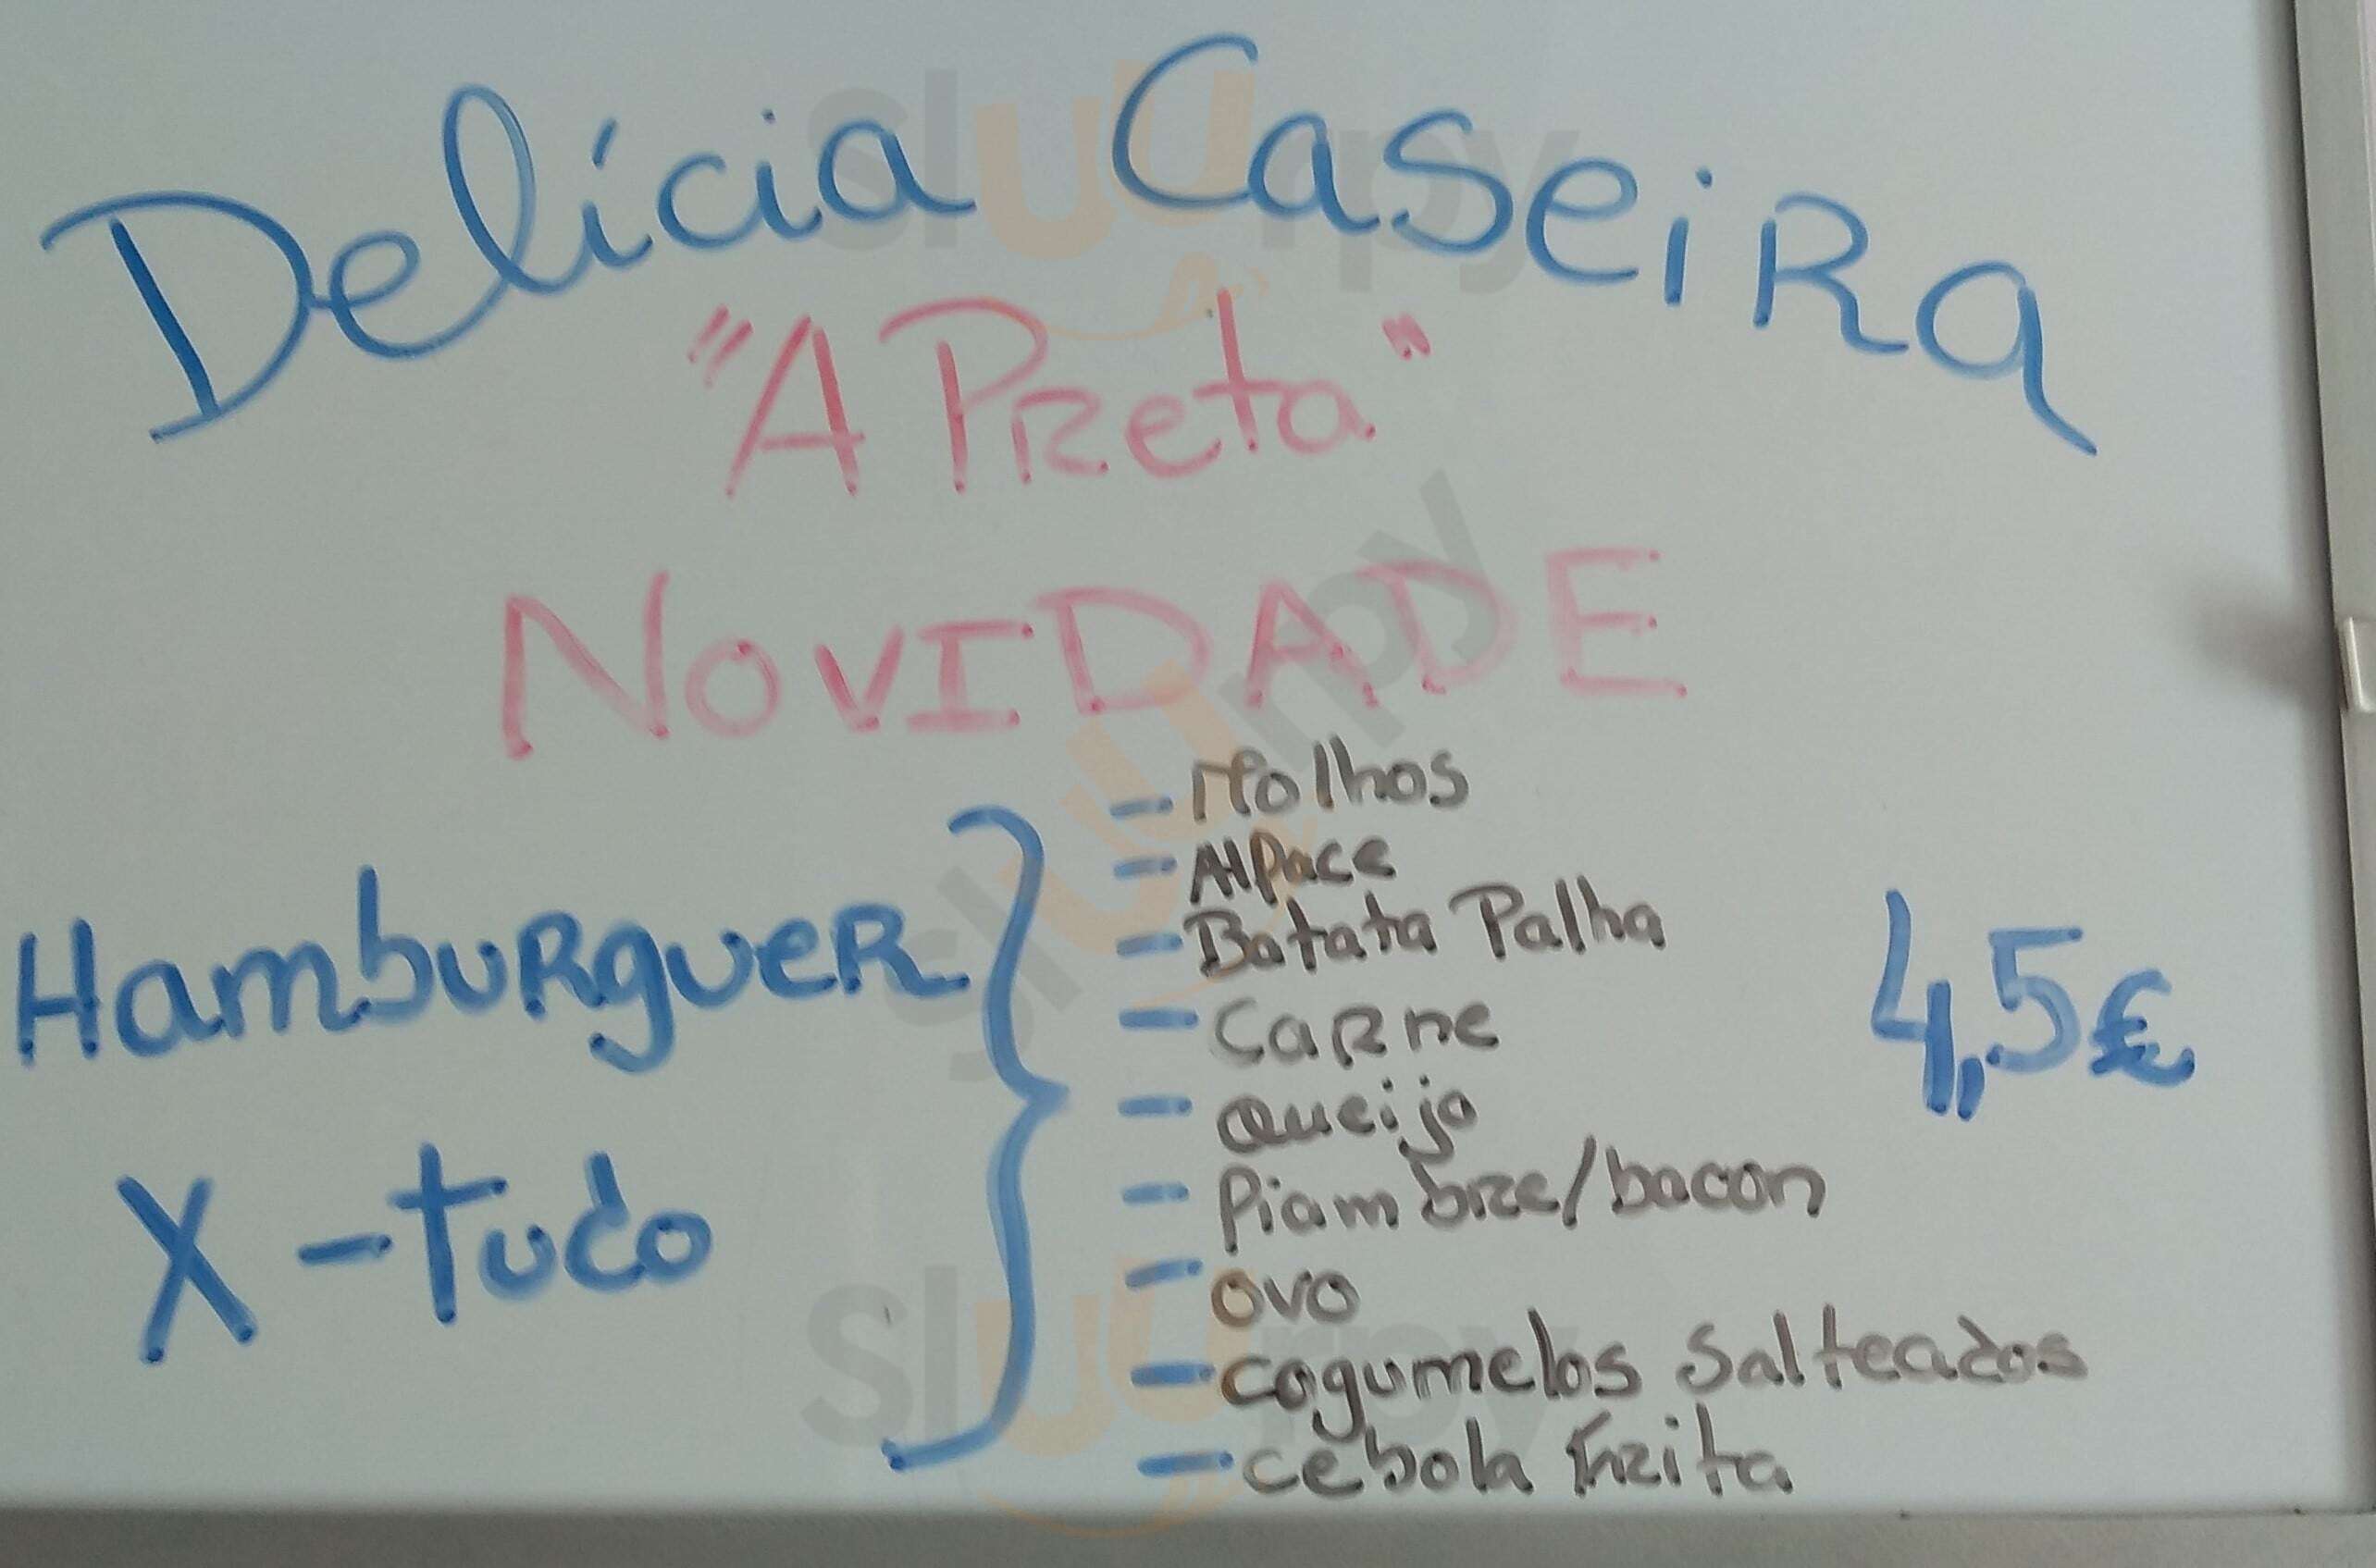 Delícia Caseira
"A Preta"
NOVIDADE
Hamburguer
X-tudo
- Molhos
- Alface
- Batata Palha
- Carne
- Queijo
- Piambre/bacon
- ovo
- cogumelos Salteados
- cebola Frita
4,5€
sluurpy
sluurpy
sluurpy